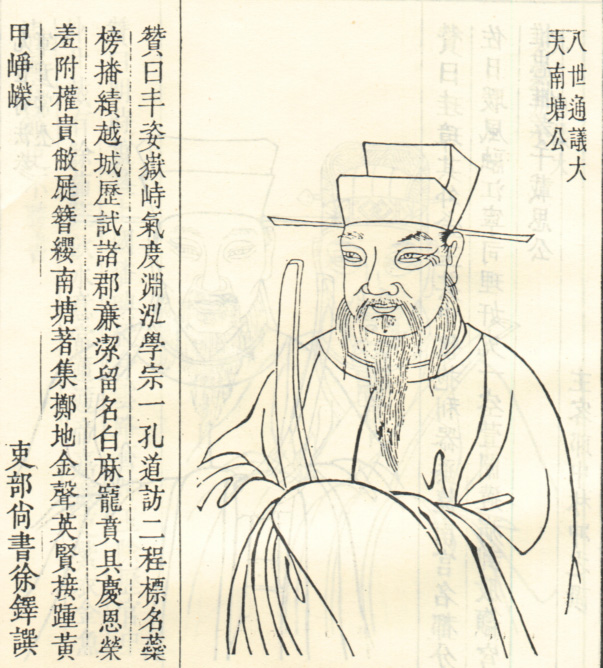 八世通議大
夫南塘公
贊曰丰姿嶽峙氣度淵泓學宗一孔道訪二程標名蘂
榜播績越城歷試諸郡亷潔留名白麻寵賁具慶恩榮
羞附權貴敝屣簪纓南塘著集擲地金聲英賢接踵黄
甲崢嶸
吏部尚書徐鐸譔